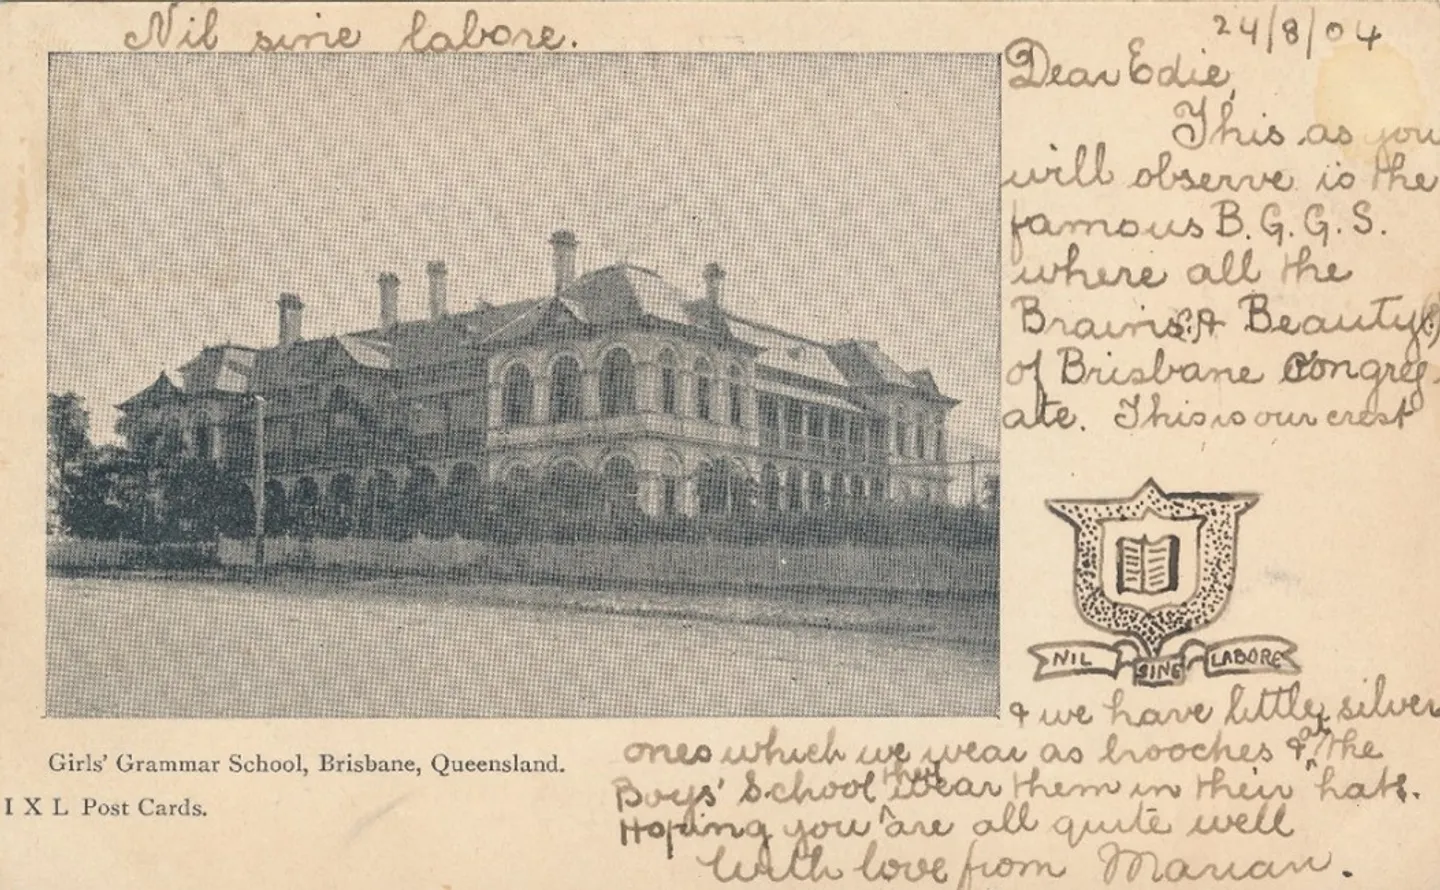 Nil sine labore.
24/8/04
Dear Edie,
This as you
will observe is the
famous B. G. G. S.
where all the
Brains & Beauty
of Brisbane Congreg-
ate. This is our crest
NIL SINE LABORE
& we have little silver
ones which we wear as brooches & at the
Boys' School they wear them in their hats.
Hoping you are all quite well
With love from Marian.
Girls' Grammar School, Brisbane, Queensland.
I X L Post Cards.